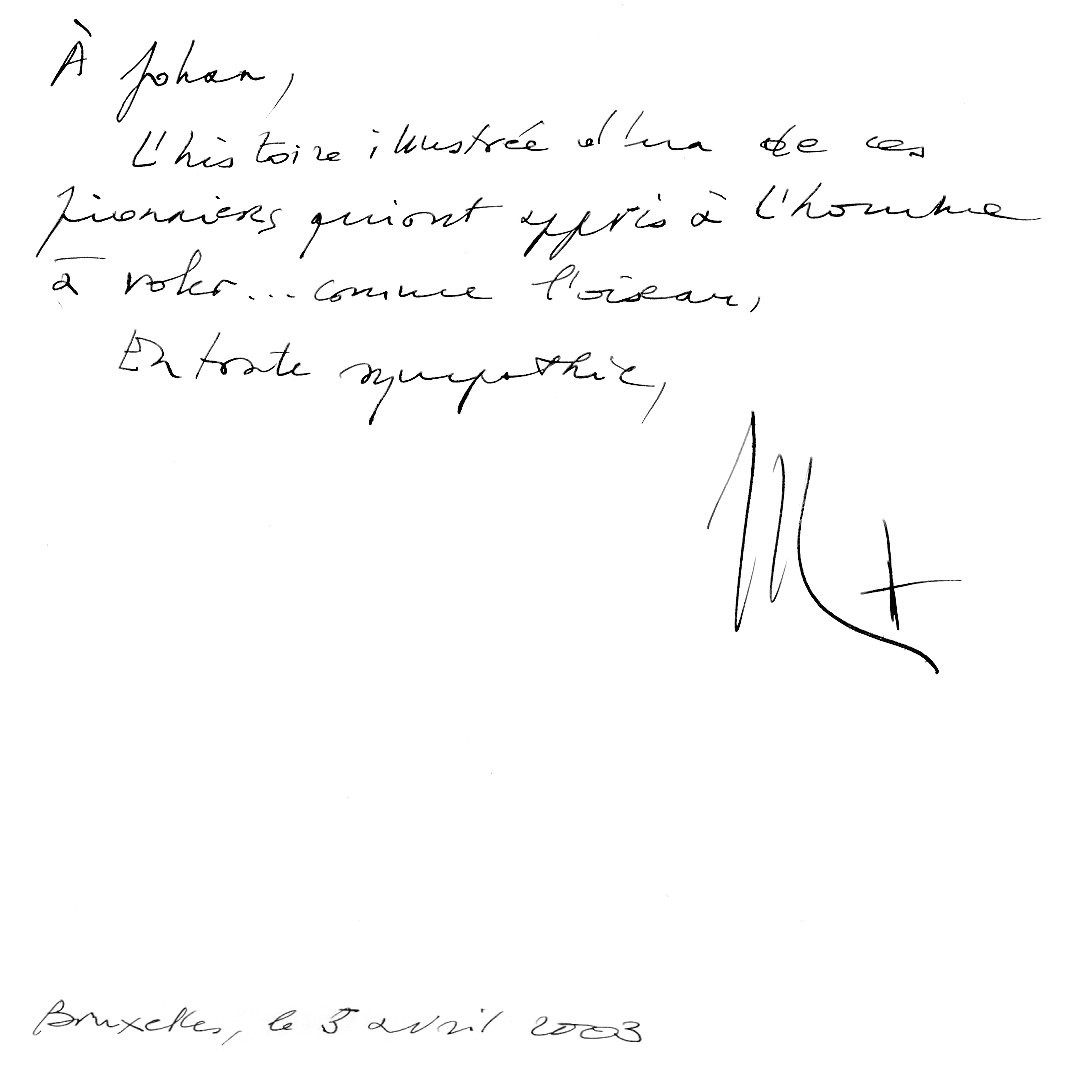 À Johan,
L'histoire illustrée d'un de ces
pionniers qui ont appris à l'homme
à voler... comme l'oiseau,
En toute sympathie,
Bruxelles, le 5 avril 2003